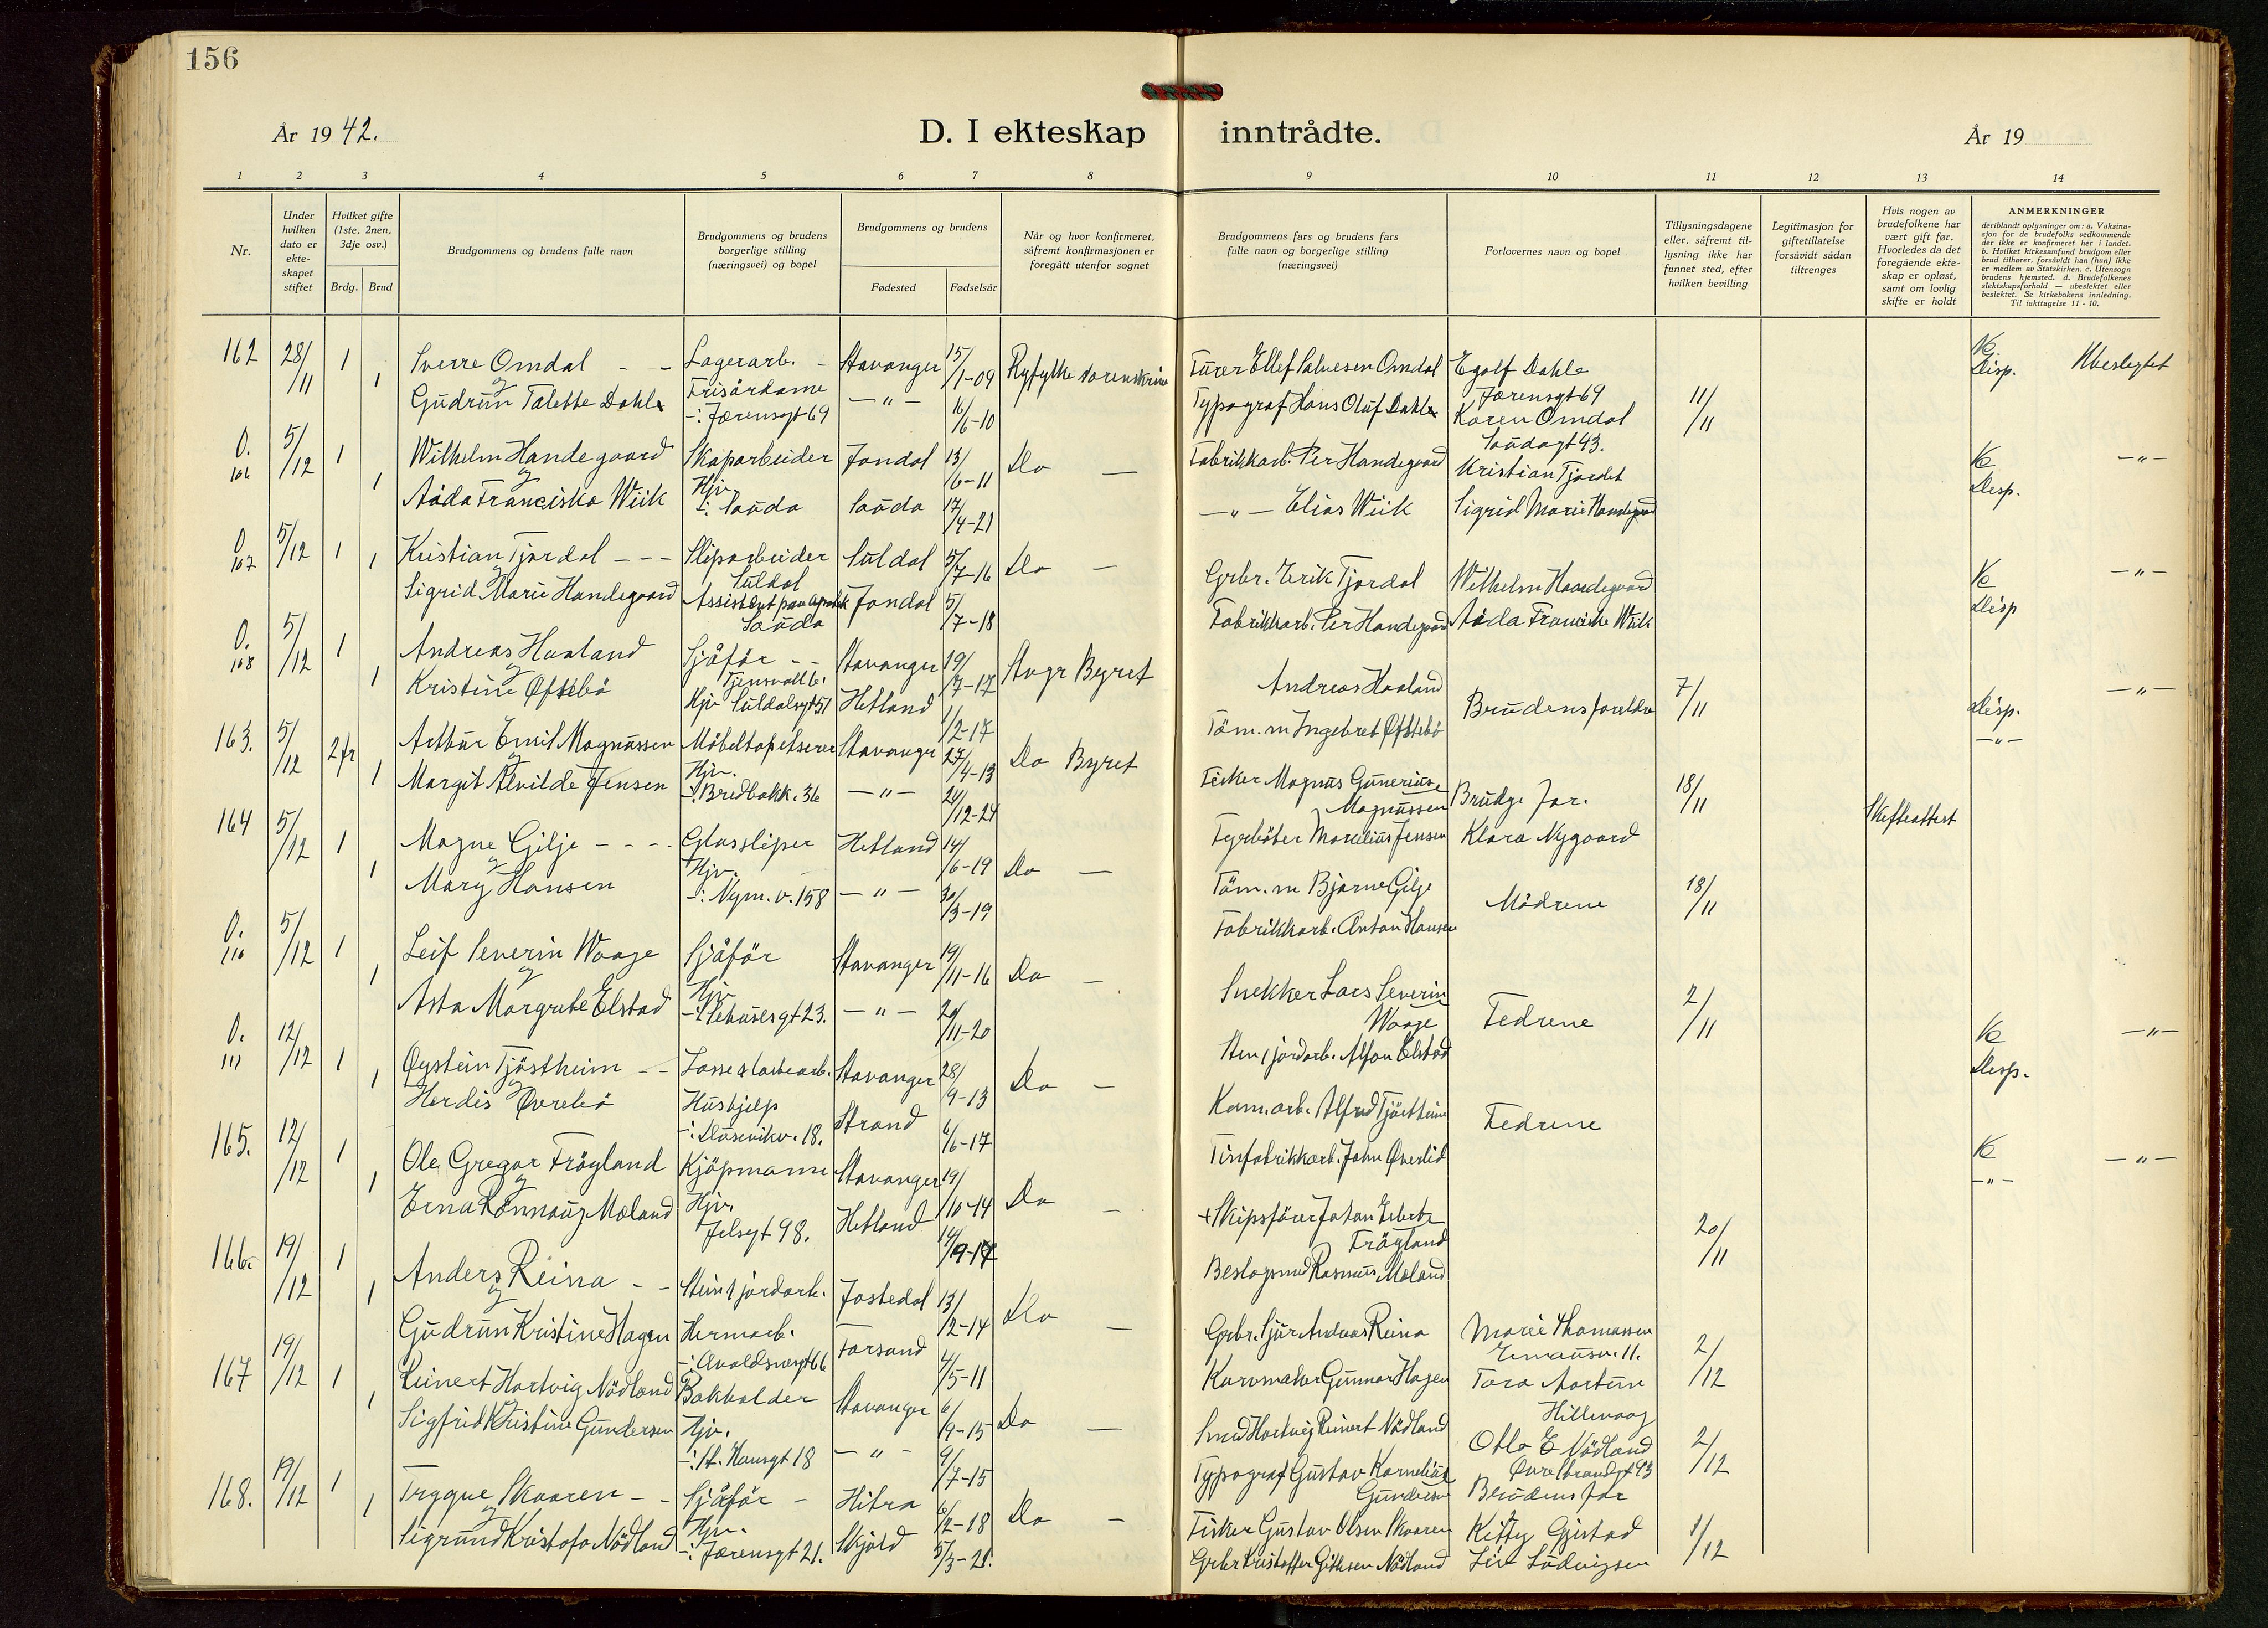 156
År 19 42.
D. I ekteskap inntrådte.
År 19
1 2 3 4 5 6 7 8 9 10 11 12 13 14
Nr.
Under hvilken dato er ekte-skapet stiftet
Hvilket gifte (1ste, 2nen, 3dje osv.)
Brdg. Brud
Brudgommens og brudens fulle navn
Brudgommens og brudens borgerlige stilling (næringsvei) og bopel
Brudgommens og brudens
Fødested
Fødselsår
Når og hvor konfirmeret, såfremt konfirmasjonen er foregått utenfor sognet
Brudgommens fars og brudens fars fulle navn og borgerlige stilling (næringsvei)
Forlovernes navn og bopel
Tillysningsdagene eller, såfremt til-lysning ikke har funnet sted, efter hvilken bevilling
Legitimasjon for giftetillatelse forsåvidt sådan tiltrenges
Hvis nogen av brudefolkene har vært gift før. Hvorledes da det foregående ekte-skap er opløst, samt om lovlig skifte er holdt
ANMERKNINGER
deriblandt oplysninger om: a. Vaksina-sjon for de brudefolks vedkommende der ikke er konfirmeret her i landet. b. Hvilket kirkesamfund brudgom eller brud tilhører, forsåvidt han (hun) ikke er medlem av Statskirken. c. Utensogn brudens hjemsted. d. Brudefolkenes slektskapsforhold — ubeslektet eller beslektet. Se kirkebokens innledning. Til iakttagelse 11 - 10.
162 28/11 1 Sverre Omdal - - Lagerarb. - Stavanger 15/1-09 Ryfylke sorenskriver Fürer Ellef Salvesen Omdal Egolf Dahle Disp. Ubeslegtet
og
1 Gudrun Talette Dahle Frisørdame -:Jærensgt 69 —"— 16/6-10 Typograf Hans Oluf Dahle Jærensgt 69 Karen Omdal Saudagt 43. 11/11
O. 106 5/12 1 Wilhelm Handegaard Skaparbeider Jondal 13/6-11 Do — Fabrikkarb. Per Handegaard Kristian Tjordal Disp. —"—
og
1 Aada Franciska Wiik Hjv. -:Sauda Sauda 17/4-21 —"— Elias Wiik Sigrid Marie Handegaard
O 107 5/12 1 Kristian Tjordal - - - Sliparbeider Suldal Suldal 5/7-16 Do — Grbr. Erik Tjordal Wilhelm Handegaard Disp —"—
og
1 Sigrid Marie Handegaard Assistent paa apotek Sauda Jondal 5/7-18 Fabrikkarb. Per Handegaard Aada Franciska Wiik
O. 108 5/12 1 Andreas Haaland Sjåför - - Tjensvollb. Stavanger 19/7-17 Stvgr Byret Andreas Haaland Brudens foreldre 7/11 Disp. —"—
og
1 Kristine Øftsbö Hjv Suldalsgt 51 Hetland 1/2-17 Töm.m Ingebret Øftsbö —"—
163. 5/12 2 fr Arthur Emil Magnussen Möbeltapetserer Stavanger 27/4-13 Do Byret Fisker Magnus Gunerius Magnussen Brudg. far. 18/11 Skifteattest
og
1 Margit Alvilde Jensen Hjv. -:Bredbakk. 36 —"— 24/12-24 Fyrböter Marelius Jensen Klara Nygaard
164 5/12 1 Magne Gilje - - - - Glassliper Hetland 14/6-19 Do — Töm.m Bjarne Gilje Mödrene 18/11
og
1 Mary Hansen Hjv. -:Nym.v. 158 —"— 30/3-19 Fabrikkarb. Anton Hansen
O. 110 5/12 1 Leif Severin Waage Sjåför Stavanger 19/11-16 Do — Snekker Lars Severin Waage Fedrene 2/11 Disp. —"—
og
1 Asta Margrete Elstad Hjv -:Pehusesgt 23. —"— 20/11-20 Sten & jordarb. Alfon Elstad
O. 111 12/12 1 Øystein Tjöstheim - - Losse & lastearb. Stavanger 28/9-13 Do — Kom.arb. Alfred Tjöstheim Fedrene —"—
og
1 Herdis Øverlid Hushjelp -: 18. Strand 6/6-17 Tinfabrikkarb. John Øverlid —"—
165. 12/12 1 Ole Gregor Fröyland Kjöpmann Stavanger 19/10-14 Do — +Skipsförer Johan Fröyland 20/11
og
1 Erna Rönnaug Moland Hjv. Jelsgt 98. Hetland 14/9-17 Beslagsmed Rasmus Moland
166. 19/12 1 Anders Reina - - Sten & jordarb. Jostedal 13/2-14 Do — Grbr. Sjur Andreas Reina Marie Thomassen Emausv. 11. 2/12
og
1 Gudrun Kristine Hagen Hermarb. -:Avaldsnesgt 66 Forsand 4/5-11 Kurvmaker Gunnar Hagen Tora Aartun Hillevaag
167 19/12 1 Reinert Hartvig Nödland Bokholder Stavanger 6/9-15 Do — Smed Hartvig Reinert Nödland Otto E Nödland Øvre Strandgt 93 2/12
og
1 Sigfrid Kristine Gundersen Hjv. -:St. Hansgt 18 —"— 4/7-15 Typograf Gustav Kornelius Gundersen Brudens far
168. 19/12 1 Trygve Skaaren - - Sjåför - Hitra 6/2-18 Do — Fisker Gustav Olsen Skaaren Kitty Gjistad 1/12
og
1 Sigrund Kristofa Nödland Hjv. -:Jærensgt 21. Skjold 5/3-21. Grbr Kristoffer Githsen Nödland Liv Ludvigsen